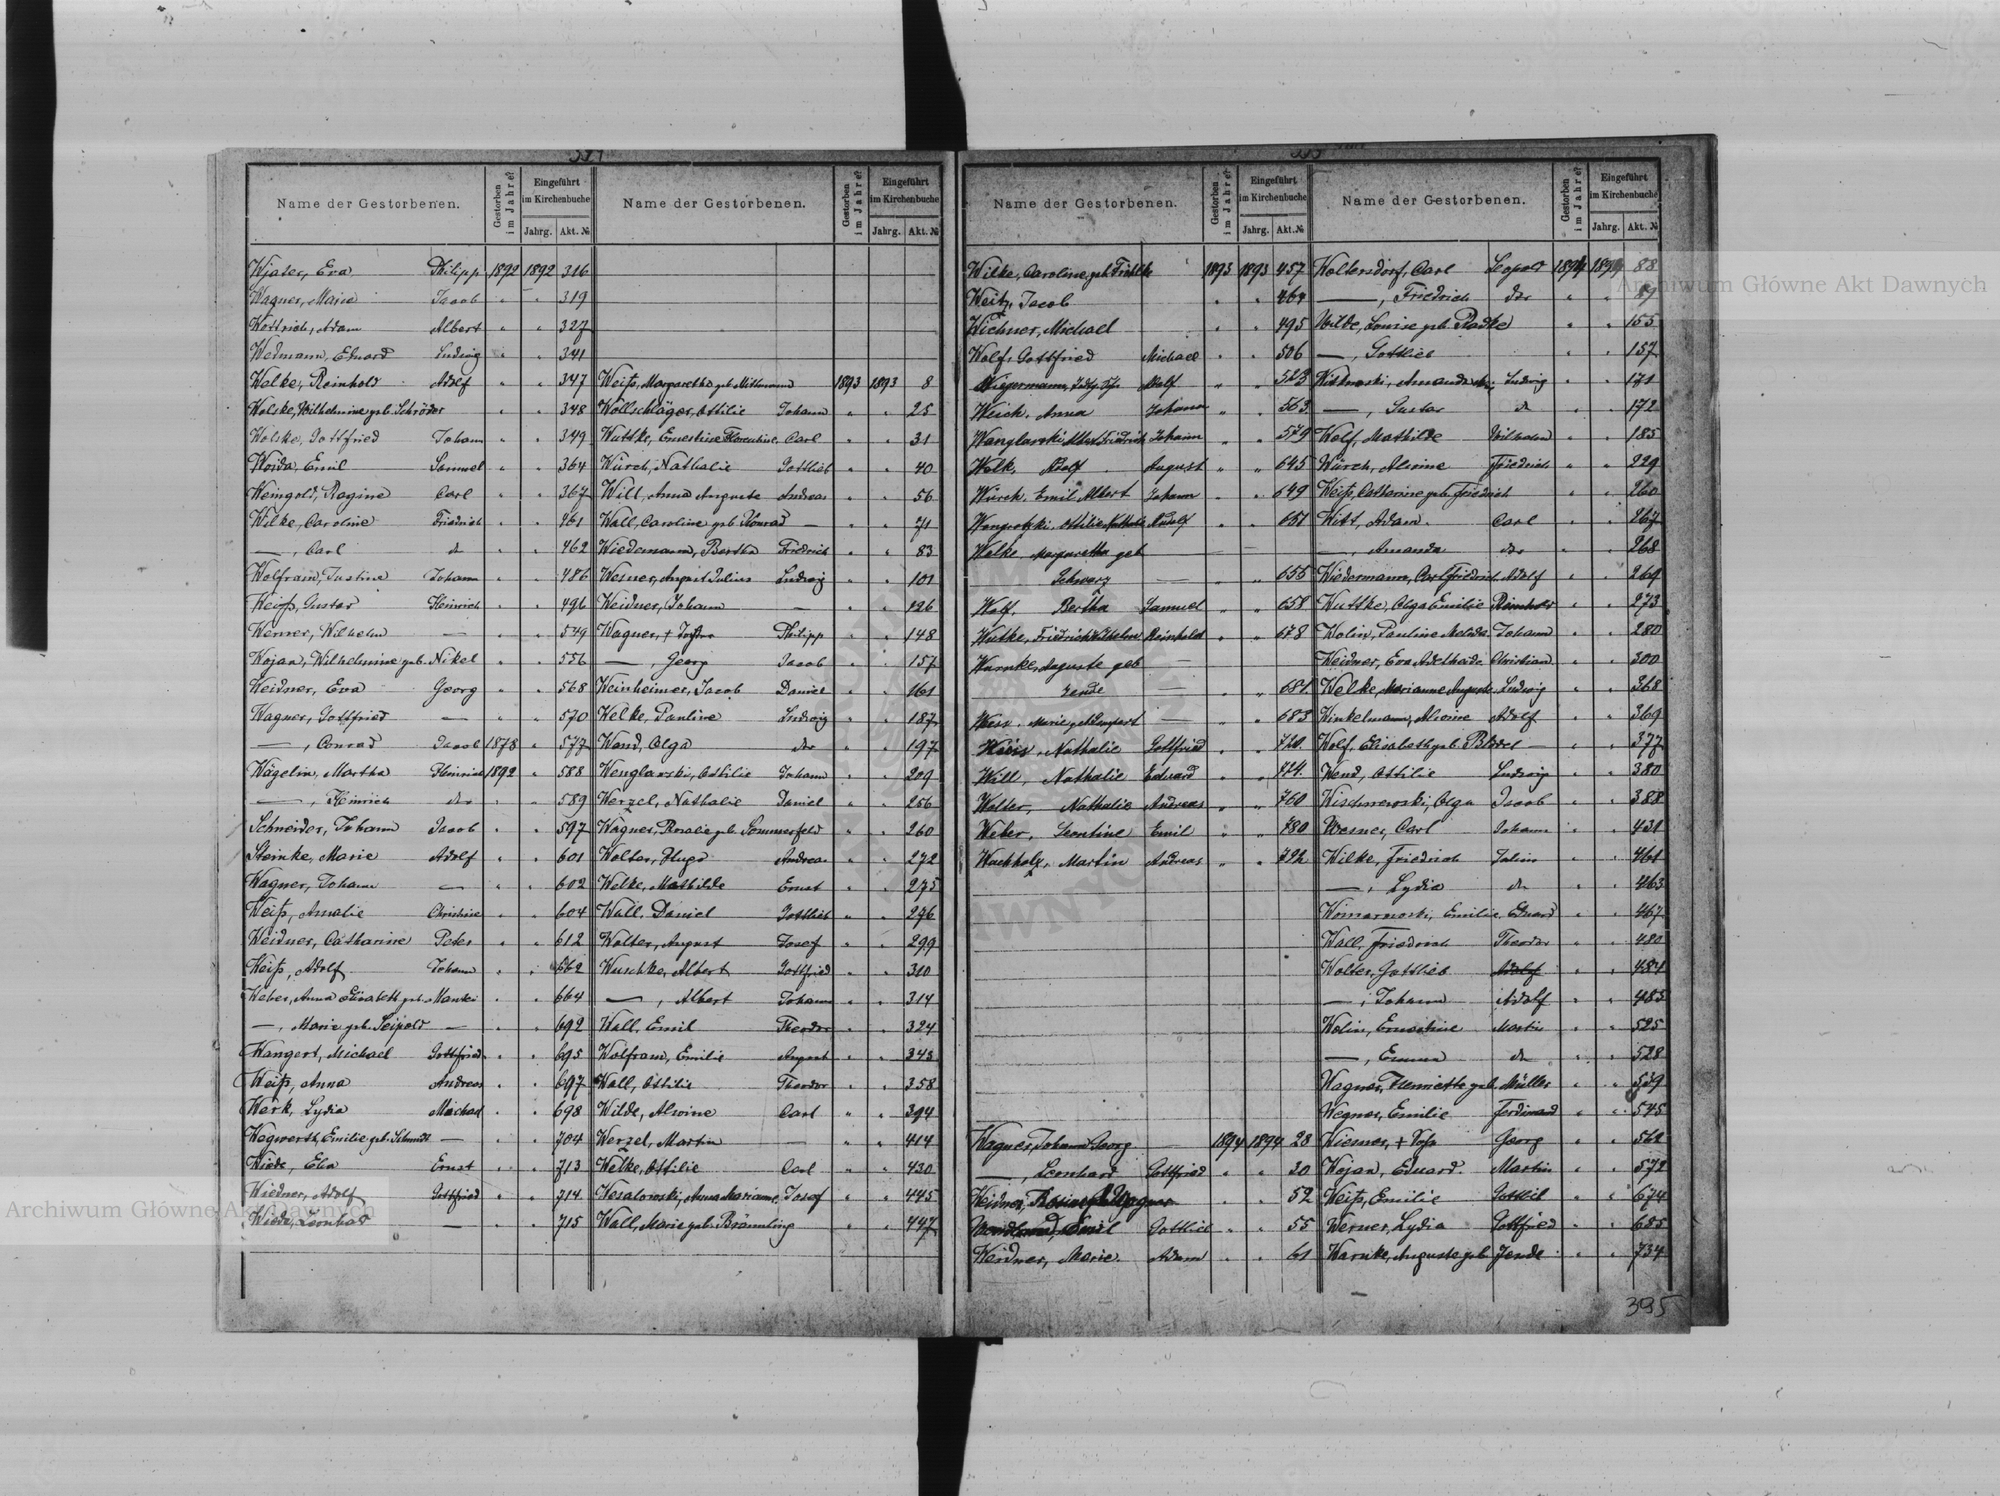 Name der Gestorbenen. Gestorben im Jahre? Eingeführt im Kirchenbuche Jahrg. Akt. №
Wjaser, Eva Philipp 1892 1892 316
Wagner, Marie Jacob " " 319
Wottrich, Adam Albert " " 327
Wedmann, Eduard Ludwig " " 341
Welke, Reinhold Adolf " " 347
Wolske, Wilhelmine geb. Schröder " " 348
Wolske, Gottfried Johann " " 349
Woida, Emil Samuel " " 364
Weingold, Regine Carl " " 367
Wilke, Caroline Friedrich " " 461
—, Carl do " " 462
Wolfram, Justine Johann " " 486
Weiß, Gustav Heinrich " " 496
Werner, Wilhelm — " " 549
Wojan, Wilhelmine geb. Nikel " " 556
Weidner, Eva Georg " " 568
Wagner, Gottfried — " " 570
—, Conrad Jacob 1878 " 577
Wägelin, Martha Heinrich 1892 " 588
—, Heinrich do " " 589
Schneider, Johann Jacob " " 597
Steinke, Marie Adolf " " 601
Wagner, Johann — " " 602
Weiß, Amalie Christine " " 604
Weidner, Catharine Peter " " 612
Weiß, Adolf Johann " " 662
Weber, Anna Elisabeth geb. " " 664
—, Marie geb. Seipold — " " 692
Wangert, Michael Gottfried " " 695
Weiß, Anna Andreas " " 697
Werk, Lydia Michael " " 698
Wegwerth, Emilie geb. Schmidt — " " 704
Wiede, Eva Ernst " " 713
Wiedner, Adolf Gottfried " " 714
Wiede, Leonhard — " " 715
Name der Gestorbenen. Gestorben im Jahre? Eingeführt im Kirchenbuche Jahrg. Akt. №
Weiß, Margaretha geb. 1893 1893 8
Wollschläger, Ottilie Johann " " 25
Wuttke, Ernestine Florentine Carl " " 31
Würch, Nathalie Gottlieb " " 40
Will, Anna Auguste Andreas " " 56
Wall, Caroline geb. Konrad — " " 71
Wiedemann, Bertha Friedrich " " 83
Wesner, August Julius Ludwig " " 101
Weidner, Johann — " " 126
Wagner, + Philipp " " 148
—, Georg Jacob " " 157
Weinheimer, Jacob Daniel " " 161
Welke, Pauline Ludwig " " 187
Wend, Olga do " " 197
Wenglarski, Ottilie Johann " " 209
Wenzel, Nathalie Daniel " " 256
Wagner, Rosalie geb. Sommerfeld " " 260
Wolter, Hugo Andreas " " 272
Welke, Mathilde Ernst " " 275
Wall, Daniel Gottlieb " " 276
Wolter, August Josef " " 299
Wuschke, Albert Gottfried " " 310
—, Albert Johann " " 314
Wall, Emil Theodor " " 324
Wolfram, Emilie August " " 343
Wall, Ottilie Theodor " " 358
Wilde, Alwine Carl " " 394
Wenzel, Martin — " " 414
Welke, Ottilie Carl " " 430
Wesalowski, Anna Marianne Josef " " 445
Wall, Marie geb. Brämling " " 447
Name der Gestorbenen. Gestorben im Jahre? Eingeführt im Kirchenbuche Jahrg. Akt. №
Wilke, Caroline geb. 1893 1893 457
Weitz, Jacob " " 464
Wichner, Michael " " 495
Wolf, Gottfried Michael " " 506
Adolf " " 523
Weich, Anna Johann " " 563
Wenglarski, Albert Friedrich Johann " " 579
Wolk, Adolf August " " 645
Würch, Emil Albert Johann " " 649
Ottilie Nathalie Rudolf " " 651
Welke, Margaretha geb
Schwarz — " " 655
Wolf, Bertha Samuel " " 658
Wutke, Friedrich Wilhelm Reinhold " " 678
Warnke, Auguste geb —
Jende — " " 681
Marie — " " 683
Weiss, Nathalie Gottfried " " 720
Will, Nathalie Eduard " " 724
Wolter, Nathalie Andreas " " 760
Weber, Leontine Emil " " 780
Wachholz, Martin Andreas " " 792
Wagner, Johann Georg — 1894 1894 28
—, Leonhard Gottfried " " 30
Weidner, " " 52
Emil Gottlieb " " 55
Weidner, Marie Adam " " 61
Name der Gestorbenen. Gestorben im Jahre? Eingeführt im Kirchenbuche Jahrg. Akt. №
Woltersdorf, Carl Leopold 1894 1894 88
—, Friedrich do " " 89
Wilde, Louise geb. Radke " " 155
—, Gottlieb " " 157
Amanda Ludwig " " 171
—, Gustav do " " 172
Wolf, Mathilde Wilhelm " " 185
Würch, Alwine Friedrich " " 229
Weiß, Catharine geb. Friedrich " " 260
Witt, Adam Carl " " 267
—, Amanda do " " 268
Wiedermann, Carl Friedrich Adolf " " 269
Wuttke, Olga Emilie Reinhold " " 273
Wolin, Pauline Johann " " 280
Weidner, Eva Adelheide Christian " " 300
Welke, Marianne Auguste Ludwig " " 368
Winkelmann, Alwine Adolf " " 369
Wolf, Elisabeth geb. — " " 377
Wend, Ottilie Ludwig " " 380
Wischnewski, Olga Jacob " " 388
Wesner, Carl Johann " " 431
Wilke, Friedrich Julius " " 461
—, Lydia do " " 463
Emilie Eduard " " 467
Wall, Friedrich Theodor " " 480
Wolter, Gottlieb Adolf " " 484
—, Johann Adolf " " 485
Wolin, Ernestine Martin " " 525
—, Emma do " " 528
Wagner, Henriette geb. Müller " " 539
Wegner, Emilie Ferdinand " " 545
Wiesner, + Georg " " 562
Wojan, Eduard Martin " " 572
Weiß, Emilie Gottlieb " " 674
Werner, Lydia Gottfried " " 685
Warnke, Auguste geb. Jende " " 734
395
Archiwum Główne Akt Dawnych
Archiwum Główne Akt Dawnych